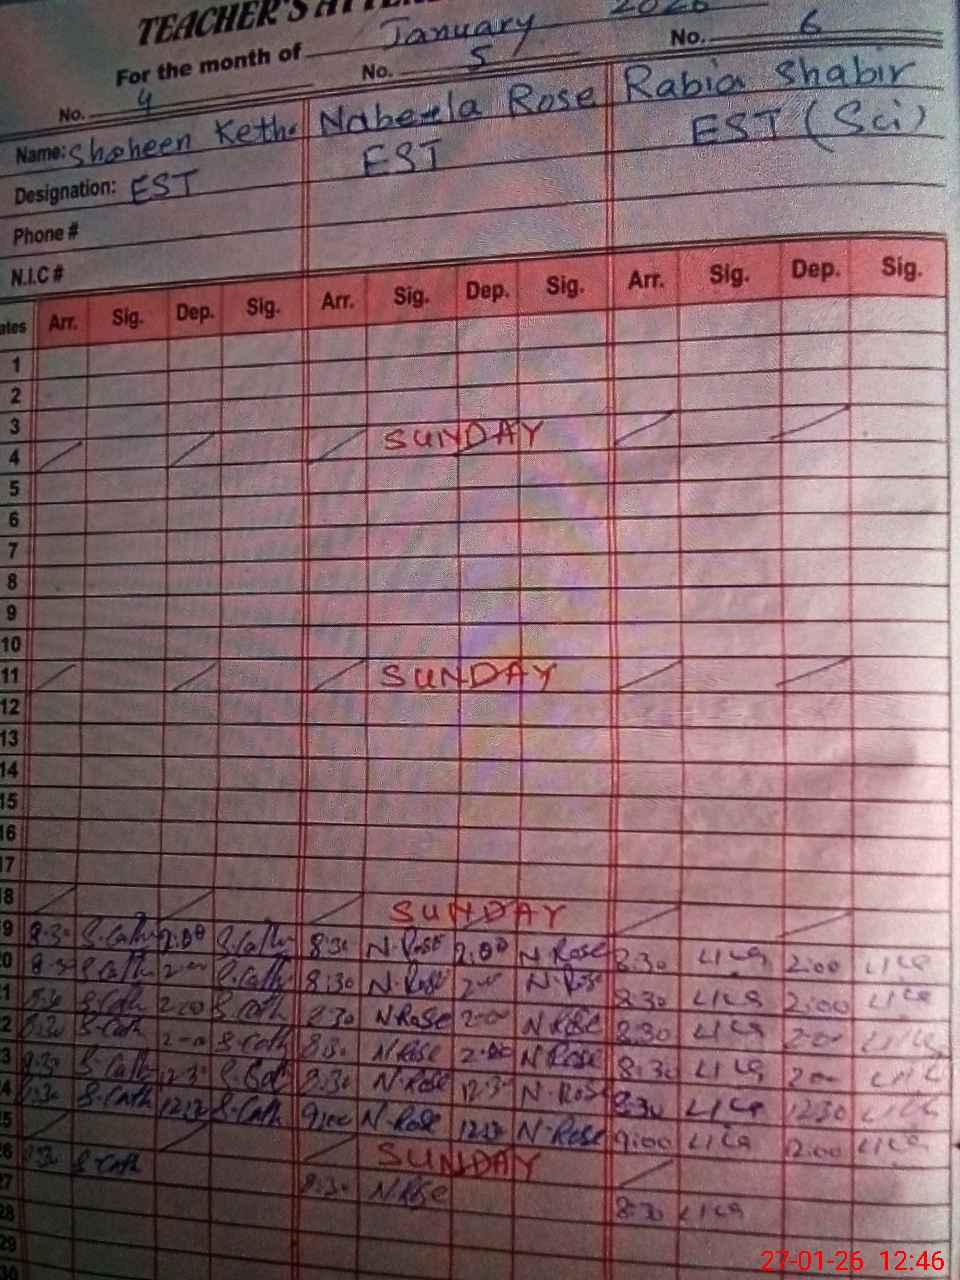 TEACHER'S
For the month of January 2026
No. 4 No. 5 No. 6
Name: Shaheen Keth. Nabeela Rose Rabia Shabir
Designation: EST EST EST (Sci)
Phone #
N.I.C #
ates Arr. Sig. Dep. Sig. Arr. Sig. Dep. Sig. Arr. Sig. Dep. Sig.
1
2
3
4 SUNDAY
5
6
7
8
9
10
11 SUNDAY
12
13
14
15
16
17
8 SUNDAY
9 8:30 S.Cath 2:00 S.Cath 8:30 N.Rose 2:00 N.Rose 8:30 2:00
0 8:30 S.Cath 2:00 S.Cath 8:30 N.Rose 2:00 N.Rose 8:30 2:00
1 S.Cath 2:00 S.Cath 8:30 N Rose 2:00 N Rose 8:30 2:00
2 8:30 S.Cath 2:00 S.Cath 8:30 N Rose 2:00 N Rose 8:30 2:00
3 8:30 S.Cath 12:30 8:30 N.Rose 12:30 N.Rose 8:30 12:30
4 S.Cath S.Cath 9:00 N.Rose N.Rose 9:00 12:00
5 SUNDAY
26 S.Cath 8:30 N.Rose 8:30
27
28
29
30
27-01-26 12:46